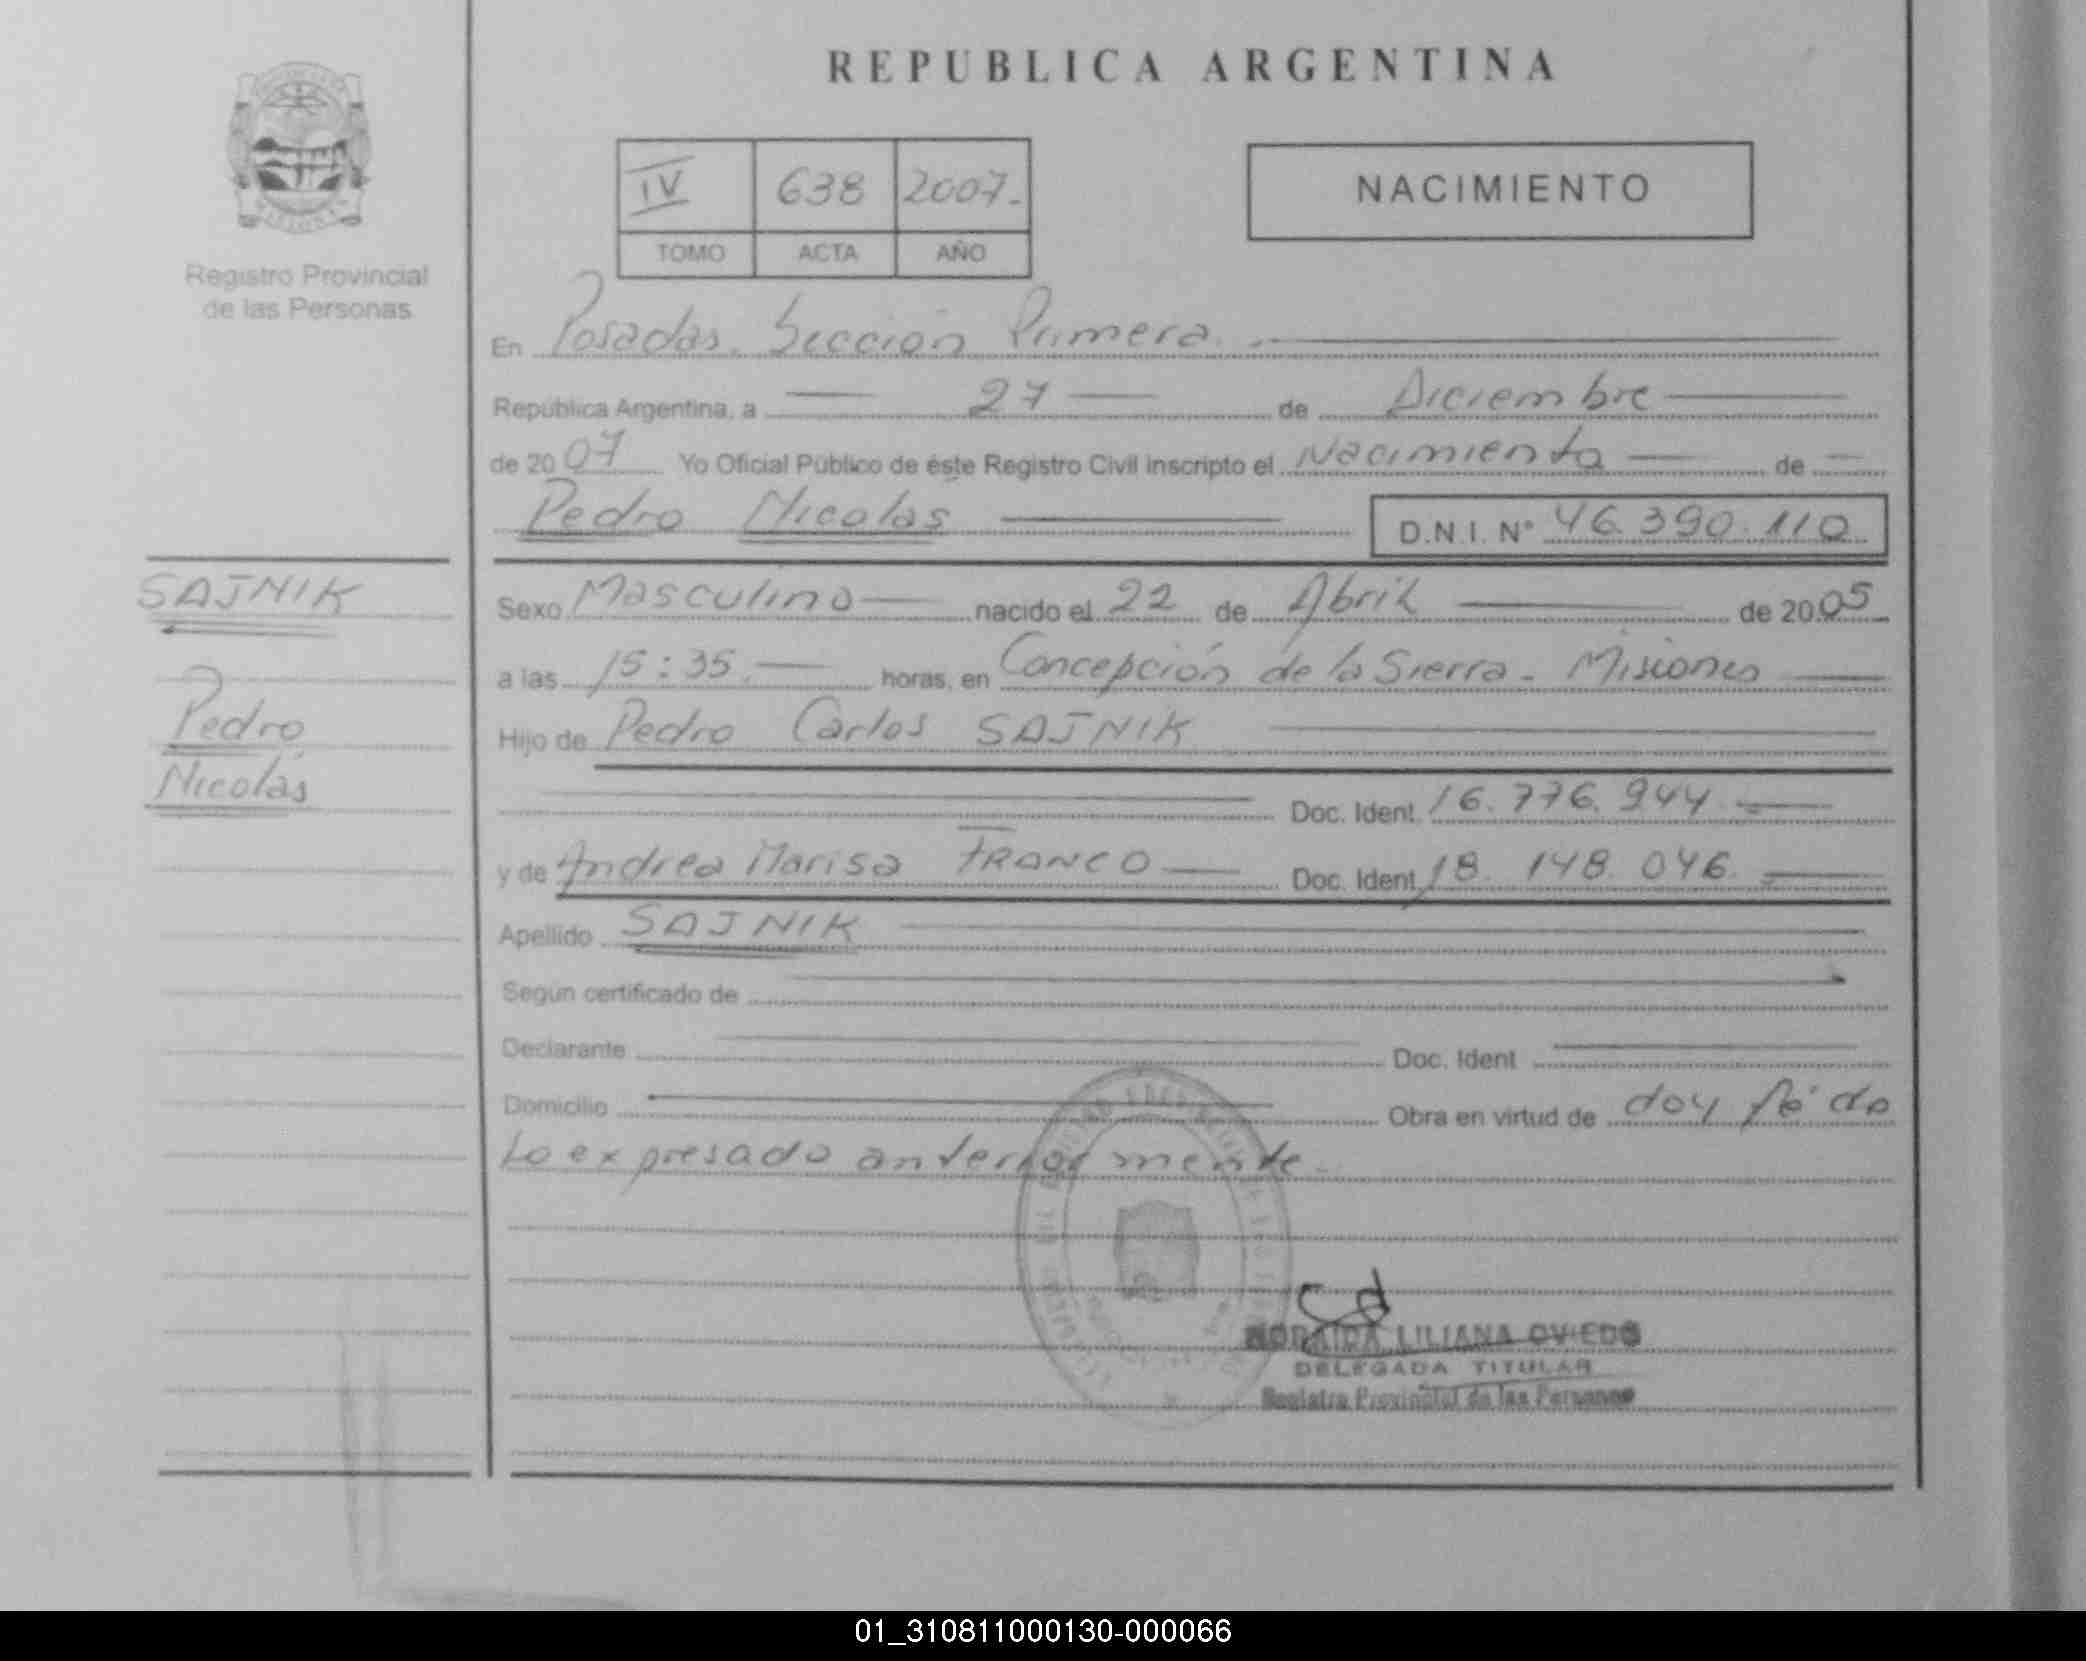 REPUBLICA ARGENTINA
Registro Provincial
de las Personas
IV 638 2007.
TOMO ACTA AÑO
NACIMIENTO
En Posadas. Sección Primera.
República Argentina, a 27 de Diciembre
de 2007 Yo Oficial Público de éste Registro Civil inscripto el Nacimiento de
Pedro Nicolás D.N.I. N° 46.390.110
SAJNIK
Pedro
Nicolás
Sexo Masculino nacido el 22 de Abril de 2005
a las 15:35. horas, en Concepción de la Sierra - Misiones
Hijo de Pedro Carlos SAJNIK
Doc. Ident. 16.776.944
y de Andrea Marisa FRANCO Doc. Ident. 18.148.046.
Apellido SAJNIK
Según certificado de
Declarante Doc. Ident
Domicilio Obra en virtud de doy fé de
Lo expresado anteriormente.
NORAIDA LILIANA OVIEDO
DELEGADA TITULAR
Registro Provincial de las Personas
01_310811000130-000066